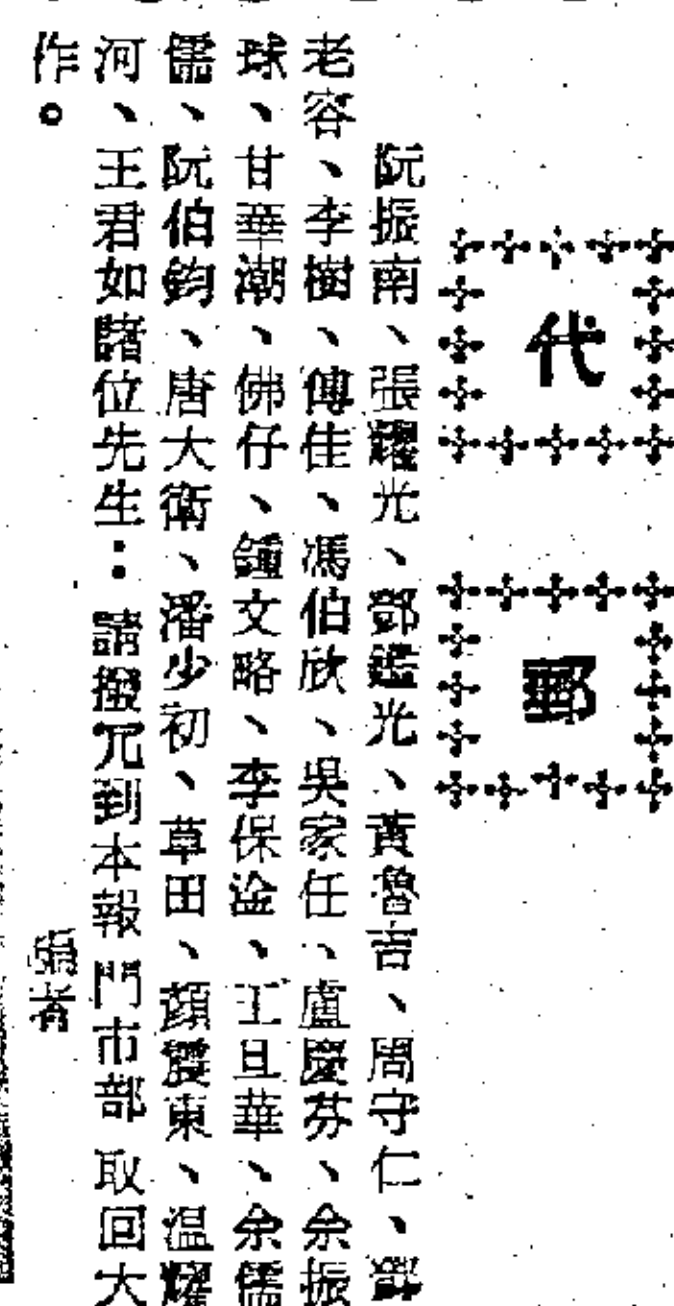 代郵
阮振南、張耀光、鄧鑑光、黃魯吉、周守仁、鄧
老容、李樹、傅佳、馮伯欣、吳家任、盧慶芬、余振
球、甘華潮、佛仔、鍾文略、李保淦、王旦華、余儒
儒、阮伯鈞、唐大衛、潘少初、草田、顏震東、温耀
河、王君如諸位先生：請撥冗到本報門市部取回大
作。
編者